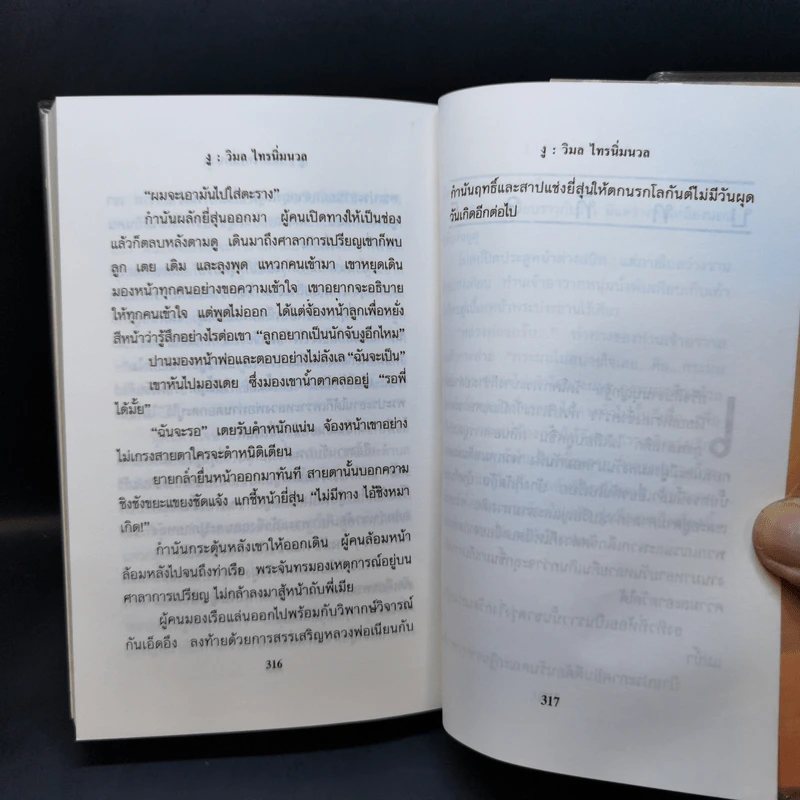 งู : วิมล ไทรนิ่มนวล
“ผมจะเอามันไปใส่ตะราง”
กำนันผลักยี่สุ่นออกมา ผู้คนเปิดทางให้เป็นช่อง
แล้วก็ตลบหลังตามดู เดินมาถึงศาลาการเปรียญเขาก็พบ
ลูก เตย เดิม และลุงพุด แหวกคนเข้ามา เขาหยุดเดิน
มองหน้าทุกคนอย่างขอความเข้าใจ เขาอยากจะอธิบาย
ให้ทุกคนเข้าใจ แต่พูดไม่ออก ได้แต่จ้องหน้าลูกเพื่อหยั่ง
สีหน้าว่ารู้สึกอย่างไรต่อเขา “ลูกอยากเป็นนักจับงูอีกไหม”
ปานมองหน้าพ่อและตอบอย่างไม่ลังเล “ฉันจะเป็น”
เขาหันไปมองเตย ซึ่งมองเขาน้ำตาคลออยู่ “รอพี่
ได้มั้ย”
“ฉันจะรอ” เตยรับคำหนักแน่น จ้องหน้าเขาอย่าง
ไม่เกรงสายตาใครจะตำหนิติเตียน
ยายกล่ำยื่นหน้าออกมาทันที สายตานั้นบอกความ
ชิงชังขยะแขยงชัดแจ้ง แกชี้หน้ายี่สุ่น “ไม่มีทาง ไอ้ชิงหมา
เกิด!”
กำนันกระตุ้นหลังเขาให้ออกเดิน ผู้คนล้อมหน้า
ล้อมหลังไปจนถึงท่าเรือ พระจันทรมองเหตุการณ์อยู่บน
ศาลาการเปรียญ ไม่กล้าลงมาสู้หน้ากับพี่เมีย
ผู้คนมองเรือแล่นออกไปพร้อมกับวิพากษ์วิจารณ์
กันเอ็ดอึง ลงท้ายด้วยการสรรเสริญหลวงพ่อเนียนกับ
316
งู : วิมล ไทรนิ่มนวล
กำนันฤทธิ์และสาปแช่งยี่สุ่นให้ตกนรกโลกันต์ไม่มีวันผุด
วันเกิดอีกต่อไป
317